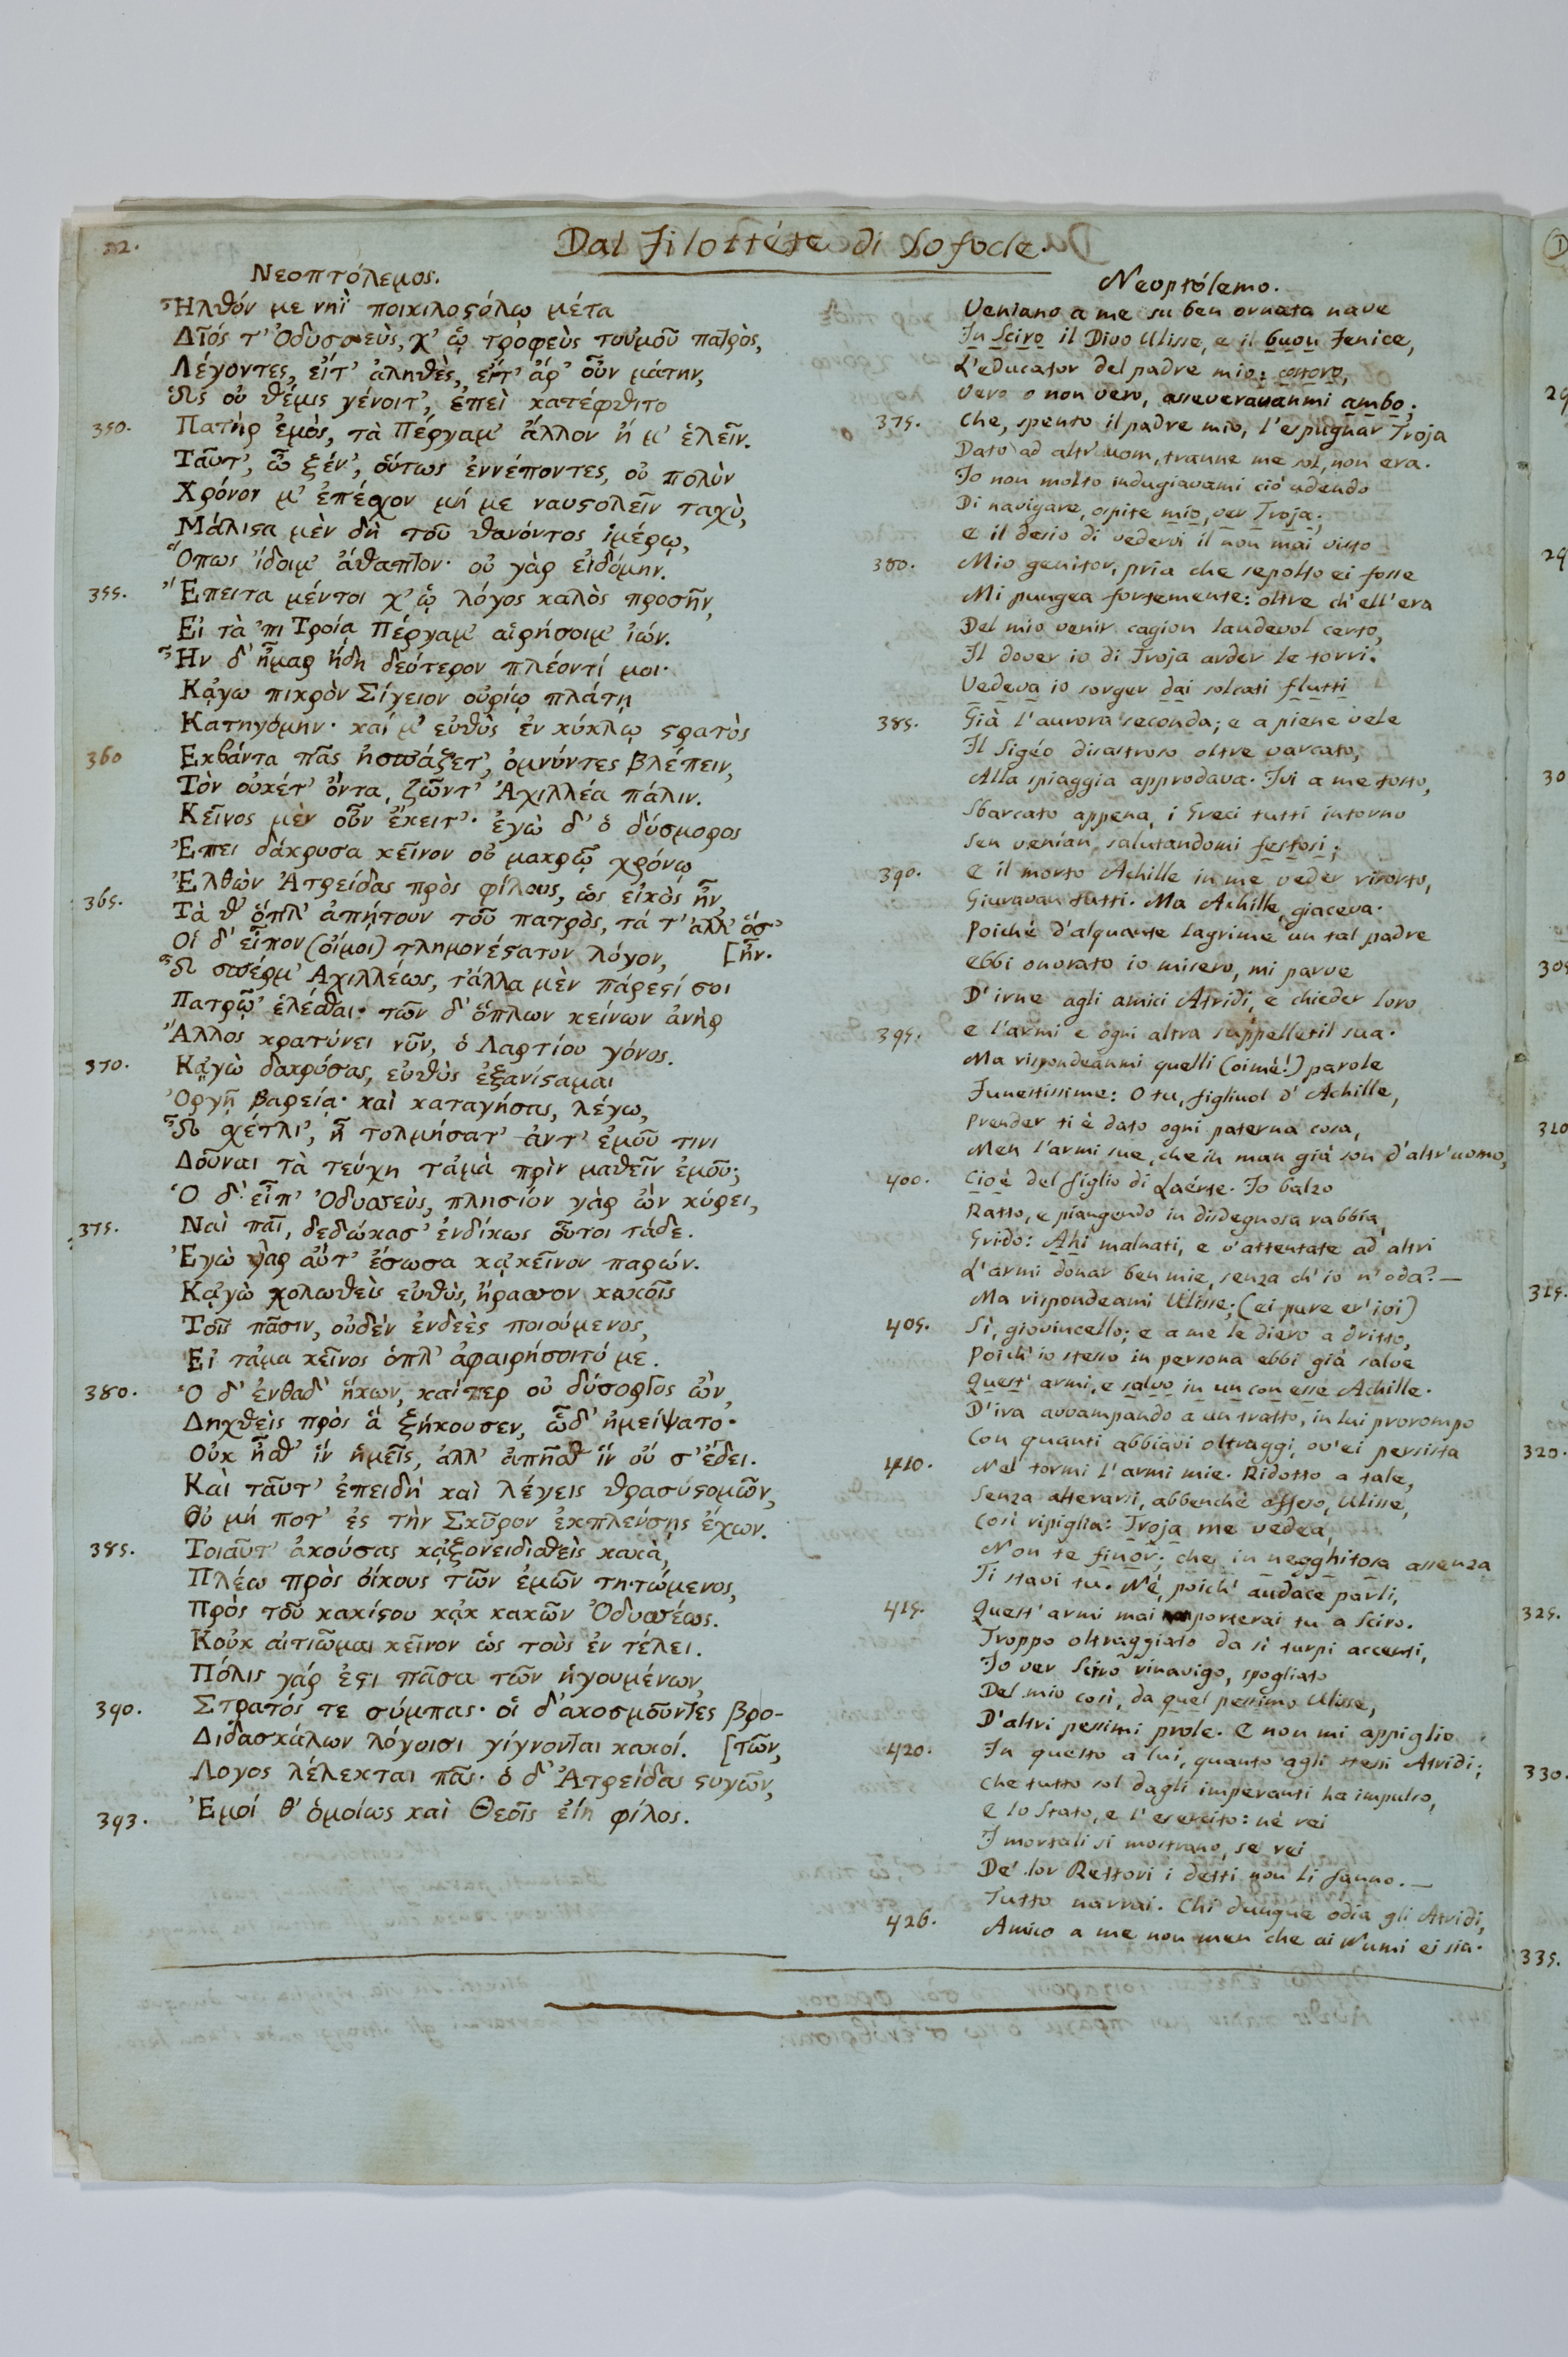 22.
Dal Filottéte di Sofocle.
Νεοπτόλεμος.
Ἦλθόν με νηῒ ποικιλοϛόλῳ μέτα
Δῖός τ' Ὀδυσσεὺς, χ' ᾧ τροφεὺς τοὐμοῦ πατρὸς,
Λέγοντες, εἴτ' ἀληθὲς, εἴτ' ἀρ' οὖν μάτην,
Ὡς οὐ θέμις γένοιτ', ἐπεὶ κατέφθιτο
350. Πατὴρ ἐμὸς, τὰ Πέργαμ' ἄλλον ἤ μ' ἑλεῖν.
Ταῦτ', ὦ ξέν', οὕτως ἐννέποντες, οὐ πολὺν
Χρόνον μ' ἐπέσχον μή με ναυϛολεῖν ταχὺ,
Μάλιϛα μὲν δὴ τοῦ θανόντος ἱμέρῳ,
Ὅπως ἴδοιμ' ἄθαπτον· οὐ γὰρ εἰδόμην.
355. Ἔπειτα μέντοι χ' ᾧ λόγος καλὸς προσῆν,
Εἰ τὰ 'πι Τροίᾳ Πέργαμ' αἱρήσοιμ' ἰών.
Ἦν δ' ἦμαρ ἤδη δεύτερον πλέοντί μοι·
Κᾀγω πικρὸν Σίγειον οὐρίῳ πλάτῃ
Κατηγόμην· καί μ' εὐθὺς ἐν κύκλῳ ϛρατὸς
360 Εκβάντα πᾶς ἠσπάζετ', ὀμνύντες βλέπειν,
Τὸν οὐκέτ' ὄντα, ζῶντ' Ἀχιλλέα πάλιν.
Κεῖνος μὲν οὖν ἔκειτ'· ἐγὼ δ' ὁ δύσμορος
Ἐπει δάκρυσα κεῖνον οὐ μακρῷ χρόνῳ
Ἐλθὼν Ἀτρείδας πρὸς φίλους, ὡς εἰκὸς ἦν,
365. Τὰ θ' ὅπλ' ἀπῄτουν τοῦ πατρὸς, τά τ' ἀλλ' ὅσ'
Οἱ δ' εἶπον (οἴμοι) τλημονέϛατον λόγον, [ἦν.
Ὦ σπέρμ' Αχιλλέως, τἄλλα μὲν πάρεϛί σοι
Πατρῷ' ἑλέσθαι· τῶν δ' ὅπλων κείνων ἀνὴρ
Ἄλλος κρατύνει νῦν, ὁ Λαρτίου γόνος.
370. Κᾀγὼ δακρύσας, εὐθὺς ἐξανίϛαμαι
Ὀργῇ βαρείᾳ· καὶ καταγήσας, λέγω,
Ὦ σχέτλι', ἦ τολμήσατ' ἀντ' ἐμοῦ τινι
Δοῦναι τὰ τεύχη τἀμὰ πρὶν μαθεῖν ἐμοῦ;
Ὁ δ' εἶπ' Ὀδυσσεὺς, πλησίον γὰρ ὢν κύρει,
375. Ναὶ παῖ, δεδώκασ' ἐνδίκως οὗτοι τάδε.
Ἐγὼ γαρ αὔτ' ἔσωσα κᾀκεῖνον παρών.
Κᾀγὼ χολωθεὶς εὐθὺς, ἤρασσον κακοῖς
Τοῖς πᾶσιν, οὐδὲν ἐνδεὲς ποιούμενος,
Εἰ τἀμα κεῖνος ὁπλ' ἀφαιρήσοιτό με.
380. Ὁ δ' ἐνθαδ' ἥκων, καίπερ οὐ δύσοργος ὢν,
Δηχθεὶς πρὸς ἃ ξήκουσεν, ὧδ' ἠμείψατο·
Οὐκ ἦσθ' ἵν ἡμεῖς, ἀλλ' ἀπῆσθ' ἵν οὐ σ' ἔδει.
Καὶ ταῦτ' ἐπειδὴ καὶ λέγεις θρασύϛομῶν,
Οὐ μή ποτ' ἐς τὴν Σκῦρον ἐκπλεύσῃς ἔχων.
385. Τοιαῦτ' ἀκούσας κᾀξονειδισθεὶς κακὰ,
Πλέω πρὸς οἴκους τῶν ἐμῶν τητώμενος,
Πρὸς τοῦ κακίϛου κᾀκ κακῶν Ὀδυσσέως.
Κοὐκ αἰτιῶμαι κεῖνον ὡς τοὺς ἐν τέλει.
Πόλις γάρ ἐϛι πᾶσα τῶν ἡγουμένων,
390. Στρατός τε σύμπας· οἱ δ' ακοσμοῦντες βρο-
Διδασκάλων λόγοισι γίγνονται κακοί. [τῶν,
Λογος λέλεκται πᾶς· ὁ δ' Ἀτρείδας ϛυγῶν,
393. Ἐμοί θ' ὁμοίως καὶ Θεοῖς εἴη φίλος.
Neoptólemo.
Veniano a me su ben ornata nave
In Sciro il Divo Ulisse, e il buon Fenice,
L'educator del padre mio; costoro,
Vero o non vero, asseveravanmi ambo;
375. Che, spento il padre mio, l'espugnar Troja
Dato ad altr'uom, tranne me sol, non era.
Io non molto indugiavami ciò udendo
Di navigare, ospite mio, ver Troja;
E il desio di vedervi il non mai visto
380. Mio genitor, pria che sepolto ei fosse
Mi pungea fortemente: oltre ch'ell'era
Del mio venir cagion laudevol certo,
Il dover io di Troja arder le torri.
Vedeva io sorger dai solcati flutti
385. Già l'aurora seconda; e a piene vele
Il Sigéo disastroso oltre varcato,
Alla spiaggia approdava. Ivi a me tosto,
Sbarcato appena, i Greci tutti intorno
Sen venían, salutandomi festosi;
390. E il morto Achille in me veder risorto,
Giuravan tutti. Ma Achille, giaceva.
Poiché d'alquante lagrime un tal padre
Ebbi onorato io misero, mi parve
D'irne agli amici Atridi, e chieder loro
395. E l'armi e ogni altra suppelletil sua.
Ma rispondeanmi quelli (oimè!) parole
Funestissime: O tu, figliuol d'Achille,
Prender ti è dato ogni paterna cosa,
Men l'armi sue, che in man già son d'altr'uomo,
400. Cioè del figlio di Laérte. Io balzo
Ratto, e piangendo in disdegnosa rabbia,
Grido: Ahi malnati, e v'attentate ad altri
L'armi donar ben mie, senza ch'io n'oda? —
Ma rispondeami Ulisse; (ei pure er'ivi)
405. Sì, giovincello; e a me le diero a dritto,
Poich'io stesso in persona ebbi già salve
Quest'armi, e salvo in un con esse Achille.
D'ira avvampando a un tratto, in lui prorompo
Con quanti abbiavi oltraggi, ov'ei persista
410. Nel tormi l'armi mie. Ridotto a tale,
Senza alterarsi, abbenchè offeso, Ulisse,
Così ripiglia: Troja me vedea,
Non te finor; che in neghittosa assenza
Ti stavi tu. Né, poich' audace parli,
415. Quest'armi mai porterai tu a Sciro.
Troppo oltraggiato da sì turpi accenti,
Io ver Sciro rinavigo, spogliato
Del mio così, da quel pessimo Ulisse,
D'altri pessimi prole. E non mi appiglio
420. In questo a lui, quanto agli stessi Atridi;
Che tutto sol dagli imperanti ha impulso,
E lo Stato, e l'esercito: né rei
I mortali si mostrano, se rei
De' lor Rettori i detti non li fanno. —
Tutto narrai. Chi dunque odia gli Atridi,
426. Amico a me non men che ai Numi ei sia.